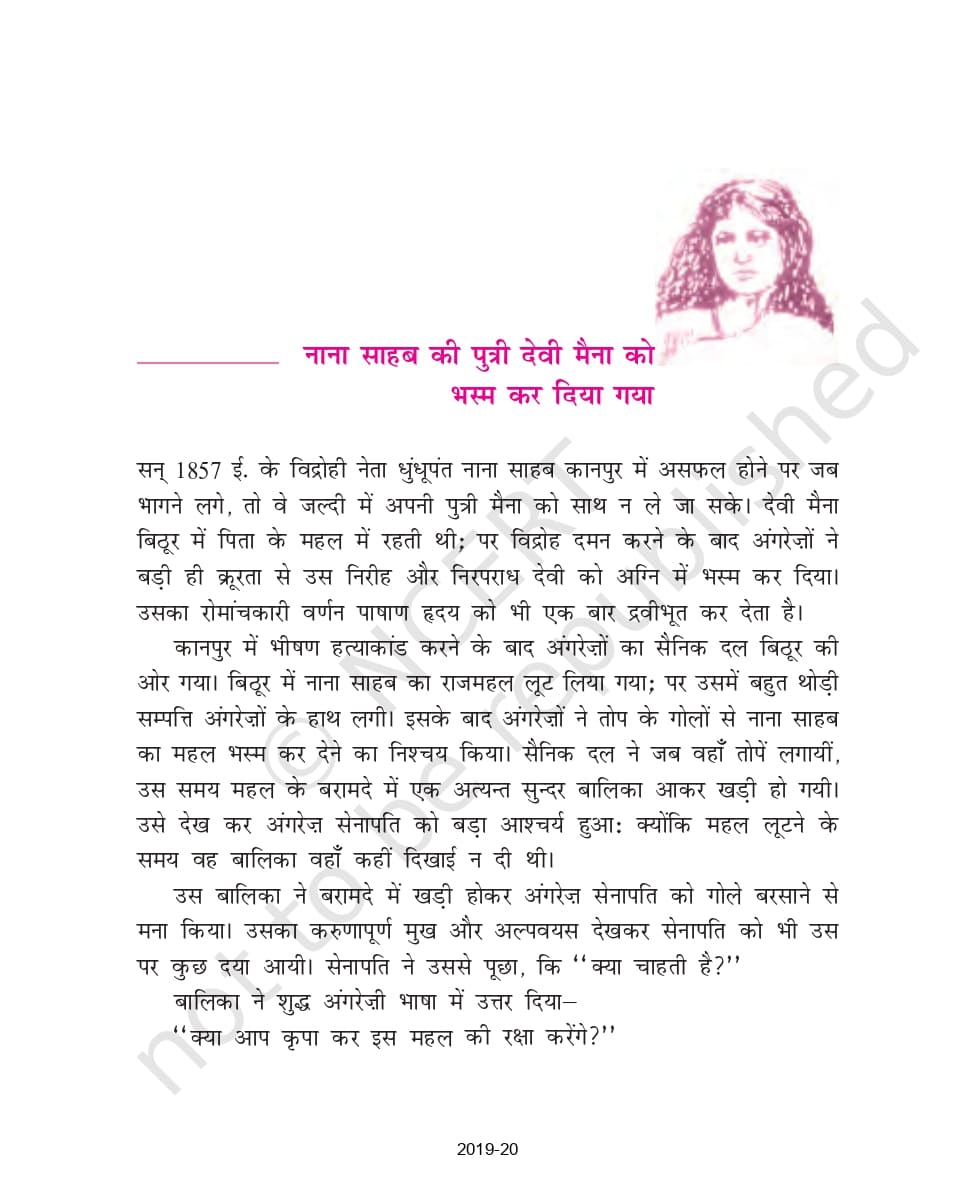 नाना साहब की पुत्री देवी मैना को
भस्म कर दिया गया
सन् 1857 ई. के विद्रोही नेता धुंधूपंत नाना साहब कानपुर में असफल होने पर जब
भागने लगे, तो वे जल्दी में अपनी पुत्री मैना को साथ न ले जा सके। देवी मैना
बिठूर में पिता के महल में रहती थी; पर विद्रोह दमन करने के बाद अंगरेज़ों ने
बड़ी ही क्रूरता से उस निरीह और निरपराध देवी को अग्नि में भस्म कर दिया।
उसका रोमांचकारी वर्णन पाषाण हृदय को भी एक बार द्रवीभूत कर देता है।
कानपुर में भीषण हत्याकांड करने के बाद अंगरेज़ों का सैनिक दल बिठूर की
ओर गया। बिठूर में नाना साहब का राजमहल लूट लिया गया; पर उसमें बहुत थोड़ी
सम्पत्ति अंगरेज़ों के हाथ लगी। इसके बाद अंगरेज़ों ने तोप के गोलों से नाना साहब
का महल भस्म कर देने का निश्चय किया। सैनिक दल ने जब वहाँ तोपें लगायीं,
उस समय महल के बरामदे में एक अत्यन्त सुन्दर बालिका आकर खड़ी हो गयी।
उसे देख कर अंगरेज़ सेनापति को बड़ा आश्चर्य हुआ: क्योंकि महल लूटने के
समय वह बालिका वहाँ कहीं दिखाई न दी थी।
उस बालिका ने बरामदे में खड़ी होकर अंगरेज़ सेनापति को गोले बरसाने से
मना किया। उसका करुणापूर्ण मुख और अल्पवयस देखकर सेनापति को भी उस
पर कुछ दया आयी। सेनापति ने उससे पूछा, कि ‘‘क्या चाहती है?’’
बालिका ने शुद्ध अंगरेज़ी भाषा में उत्तर दिया–
‘‘क्या आप कृपा कर इस महल की रक्षा करेंगे?’’
© NCERT
not to be republished
2019-20